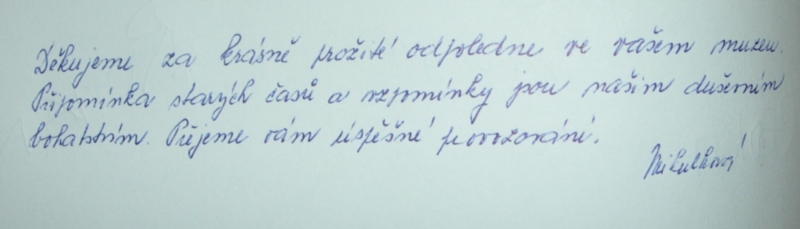 Děkujeme za krásně prožité odpoledne ve vašem muzeu.
Připomínka starých časů a vzpomínky jsou našim duševním
bohatstvím. Přejeme vám úspěšné provozování.